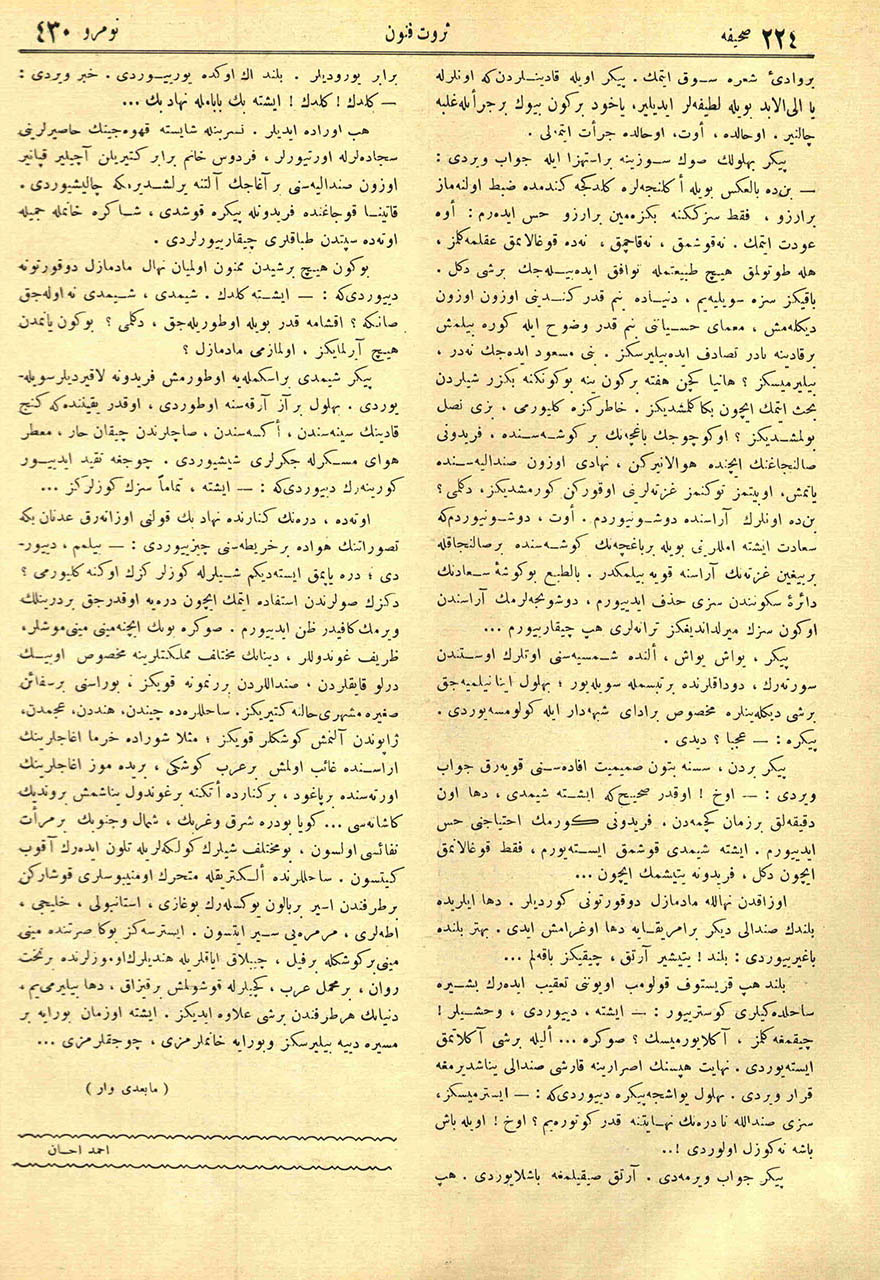 ٢٢٤ صحیفه
ثروت فنون
نومرو ٤٣٠
بروادئ شعره سوق ایتمك . پیكر اویله قادینلردن كه اونلرله
یا الی الابد بویله لطیفه لر ایدیلیر، یاخود بركون بیوك برجرأتله غلبه
چالنیر . اوحالده ، أوت، اوحالده جرأت ایتملی .
پیكر بهلولك صوك سوزینه براستهزا ایله جواب ویردی :
— بن ده بالعكس بویله أكلنجه لره كلدكجه كندمده ضبط اولنه ماز
برارزو ، فقط سزككنه بكزه مین برارزو حس ایده رم : أوه
عودت ایتمك . نه قوشمق ، نه قاچمق ، نه ده قوغالانمق عقلمه كلمز ،
هله طوتولمق هیچ طبیعتمله توافق ایده بیله جك برشی دكل .
باقیكز سزه سویلیه یم ، دنیاده بنم قدر كندینی اوزون اوزون
دیكله مش ، معمای حسیاتنی بنم قدر وضوح ایله كوره بیلمش
برقادینه نادر تصادف ایده بیلیرسكز . بنی مسعود ایده جك نه در ،
بیلیرمیسكز ؟ هانیا كچن هفته بركون ینه بوكونكنه بكزر شیلردن
بحث ایتمك ایچون بكا كلمشدیكز . خاطركزه كلیورمی ، بزی نصل
بولمشدیكز ؟ اوكوچوجك باغچه نك بر كوشه سنده ، فریدونی
صالنجاغنك ایچنده هوالانیركن ، نهادی اوزون صندالیه سنده
یاتمش، اوبیتمز توكنمز غزته لرینی اوقوركن كورمشدیكز، دكلمی ؟
بن ده اونلرك آراسنده دوشونیوردم . أوت ، دوشونیوردم كه
سعادت ایشته امللرنی بویله برباغچه نك كوشه سنده برصالنجاقله
برییغین غزته نك آراسنه قویه بیلمكدر . بالطبع بوكوشهٔ سعادتك
دائرهٔ سكونندن سزی حذف ایدییورم ، دوشونجه لرمك آراسندن
اوكون سزك میرلداندیغكز ترانه لری هپ چیقارییورم ...
پیكر ، یواش یواش ، ألنده شمسیه سنی اوتلرك اوستندن
سورته رك ، دوداقلرنده برتبسمله سویله یور ؛ بهلول اینانیلمیه جق
برشی دیكله ینلره مخصوص برادای شبهه دار ایله كولومسه یوردی .
پیكره : — عجبا ؟ دیدی .
پیكر بردن ، سسنه بتون صمیمیت افاده سنی قویه رق جواب
ویردی : — اوخ ! اوقدر صحیح كه ایشته شیمدی ، دها اون
دقیقه لق برزمان كچمه دن ، فریدونی كورمك احتیاجنی حس
ایدییورم . ایشته شیمدی قوشمق ایسته یورم ، فقط قوغالانمق
ایچون دكل ، فریدونه یتیشمك ایچون ...
اوزاقدن نهالله مادمازل دوقورتونی كوردیلر . دها ایلریده
بلندك صندالی دیگر برامریقایه دها اوغرامش ایدی . بهتر بلنده
باغیرییوردی : بلند ! یتیشیر آرتق ، چیقیكز باقه لم ...
بلند هپ قریستوف قولومب اویوننی تعقیب ایده رك بشیره
ساحلده كیلری كوسترییور : — ایشته ، دییوردی ، وحشیلر !
چیقمغه كلمز ، آكلایورمیسك ؟ صوكره ... ألیله برشی آكلاتمق
ایسته یوردی . نهایت هپسنك اصرارینه قارشی صندالی یناشدیرمغه
قرار ویردی . بهلول یواشجه پیكره دییوردی كه : — ایسترمیسكز،
سزی صندالله نادره نك نهایتنه قدر كوتوره یم ؟ اوخ ! اویله باش
باشه نه كوزل اولوردی !..
پیكر جواب ویرمه دی . آرتق صیقیلمغه باشلایوردی . هپ
برابر یورودیلر . بلند اك اوكده یورییوردی . خبر ویردی :
— كلدك ! كلدك ! ایشته بك بابامله نهاد بك ...
هب اوراده ایدیلر . نسرینله شایسته قهوه جینك حاصیرلرینی
سجاده لرله اورتیورلر ، فردوس خانم برابر كتیریلن آچیلیر قپانیر
اوزون صندالیه سنی برآغاجك آلتنه یرلشدیرمكه چالیشیوردی .
قاتینا قوجاغنده فریدونله پیكره قوشدی ، شاكره خانمله جمیله
اوته ده سپتدن طباقلری چیقارییورلردی .
بوكون هیچ برشیدن ممنون اولمیان نهال مادمازل دوقورتونه
دییوردی كه : — ایشته كلدك . شیمدی ، شیمدی نه اوله جق
صانكه ؟ اقشامه قدر بویله اوطوریله جق ، دكلمی ؟ بوكون یانمدن
هیچ آیرلمایكز ، اولمازمی مادمازل ؟
پیكر شیمدی براسكمله یه اوطورمش فریدونه لاقیردیلر سویله‌-
یوردی . بهلول برآز آرقه سنه اوطوردی ، اوقدر یقیننده كه كنج
قادینك سینه سندن ، أكسه سندن ، صاچلرندن چیقان حار ، معطر
هوای مسكرله جكرلری شیشیوردی . چوجغه تقید ایدییور
كورینه رك دییوردی كه : — ایشته ، تماماً سزك كوزلركز ...
اوته ده ، دره نك كنارنده نهاد بك قولنی اوزاته رق عدنان بكه
تصوراتنك هواده برخریطه سنی چیزییوردی : — بیلم م ، دییور-
دی ؛ دره یاپمق ایسته دیكم شیلرله كوزلر كزك اوكنه كلیورمی ؟
دكزك صولرندن استفاده ایتمك ایچون دره یه اوقدرجق بردرینلك
ویرمك كافیدر ظن ایدییورم . صوكره بونك ایچنه مینی مینی موشلر،
ظریف غوندوللر ، دنیانك مختلف مملكتلرینه مخصوص اوییك
درلو قایقلردن ، صنداللردن بررنمونه قویكز ، بوراسنی برسفائن
صغیره مشهری حالنه كتیریكز. ساحللرده چیندن، هنددن، عجمدن،
ژاپوندن آلنمش كوشكلر قویكز ؛ مثلا شوراده خرما اغاجلرینك
اراسنده غائب اولمش برعرب كوشكی ، بریده موز اغاجلرینك
اورته سنده برپاغود ، بركنارده أتكنه برغوندول یناشمش بروندیك
كاشانه سی ... كویا بودره شرق وغربك ، شمال وجنوبك برمرأت
نفائسی اولسون ، بومختلف شیلرك كولكه لریله تلون ایده رك آقوب
كیتسون . ساحللرنده ألكتریقله متحرك اومنیبوسلری قوشاركن
برطرفندن اسیر بربالون یوكسله رك بوغازی ، استانبولی ، خلیجی ،
اطه لری ، مرمره یی سیر ایتسون . ایسترسه كز بوكا صرتنده مینی
مینی بركوشكله برفیل ، چیپلاق ایاقلریله هندیلرك اوموزلرنده برتخت
روان ، برمحمل عرب ، كچیلرله قوشولمش برقیزاق ، دها بیلیرمی یم ،
دنیانك هرطرفندن برشی علاوه ایدیكز . ایشته اوزمان بورایه بر
مسیره دییه بیلیرسكز وبورایه خانملرمزی ، چوجقلرمزی ...
( مابعدی وار )
احمد احسان